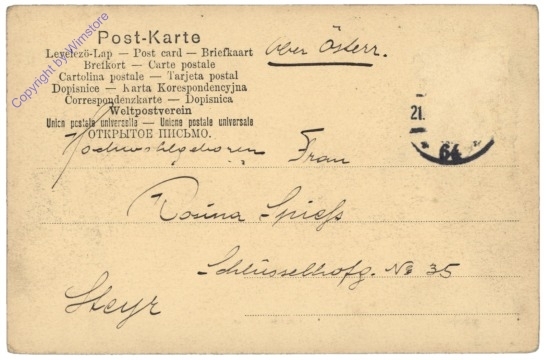 Post-Karte
Levelező-Lap — Post card — Briefkaart
Brefkort — Carte postale
Cartolina postale — Tarjeta postal
Dopisnice — Karta Korespondencyjna
Correspondenzkarte — Dopisnica
Weltpostverein
Union postala universella — Unione postale universale
ОТКРЫТОЕ ПИСЬМО.
Ober Österr.
21.
64
Hochwohlgeboren Frau
Rosina Spieß
Schlüsselhofg. No 35
Steyr
Copyright by Wimstore